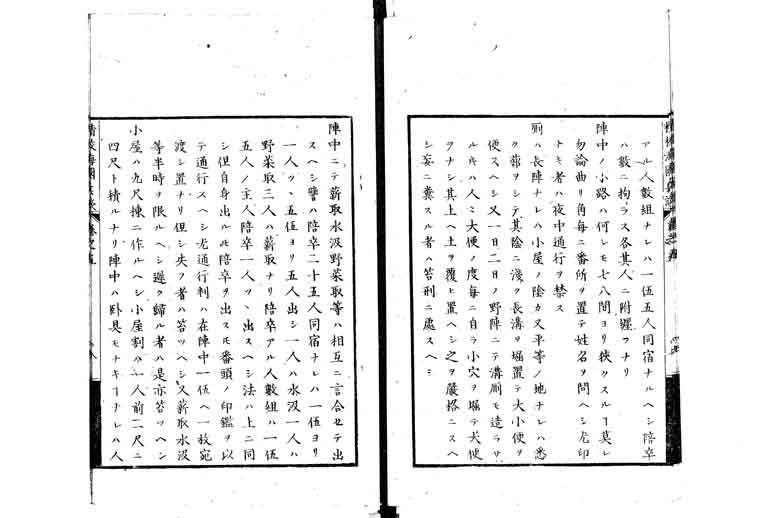 アル人數組ナレハ一伍五人同宿ナルヘシ陪卒
ハ數ニ拘ラス各其人ニ附纒フナリ
陣中ノ小路ハ何レモ七八間ヨリ狹クスルヿ莫レ
勿論曲リ角每ニ番所ヲ置テ姓名ヲ問ヘシ尤印
ナキ者ハ夜中通行ヲ禁ス
厠ハ長陣ナレハ小屋ノ陰カ又平等ノ地ナレハ悉
ク葬ヲシテ其陰ニ淺ク長溝ヲ堀置テ大小便ヲ
便スヘシ又一日二日ノ野陣ニテ溝厠モ造ラサ
ルキハ人々大便ノ度每ニ自ラ小穴ヲ堀テ大便
ヲナシ其上ヘ土ヲ覆ヒ置ヘシ之ヲ嚴格ニスヘ
シ妄ニ糞スル者ハ笞刑ニ處スヘシ
陣中ニテ薪取水汲野菜取等ハ相互ニ言合セテ出
スヘシ譬ハ陪卒二十五人同宿ナレハ一伍ヨリ
一人ツヽ五伍ヨリ五人出シ一人ハ水汲一人ハ
野菜取三人ハ薪取ナリ陪卒アル人數組ハ一伍
五人ノ主人陪卒一人ツヽ出スヘシ法ハ上ニ同
シ但自身出ルモ陪卒ヲ出スモ番頭ノ印鑑ヲ以
テ通行スヘシ尤通行判ハ在陣中一伍ヘ一枚宛
渡シ置ナリ但シ失フ者ハ笞ツヘシ又薪取水汲
等半時ヲ限ルヘシ遲ク歸ル者ハ是亦笞ツヘシ
小屋ハ九尺棟ニ作ルヘシ小屋割ハ一人前二尺ニ
四尺ト積ルナリ陣中ハ臥具モナキヿナレハ人